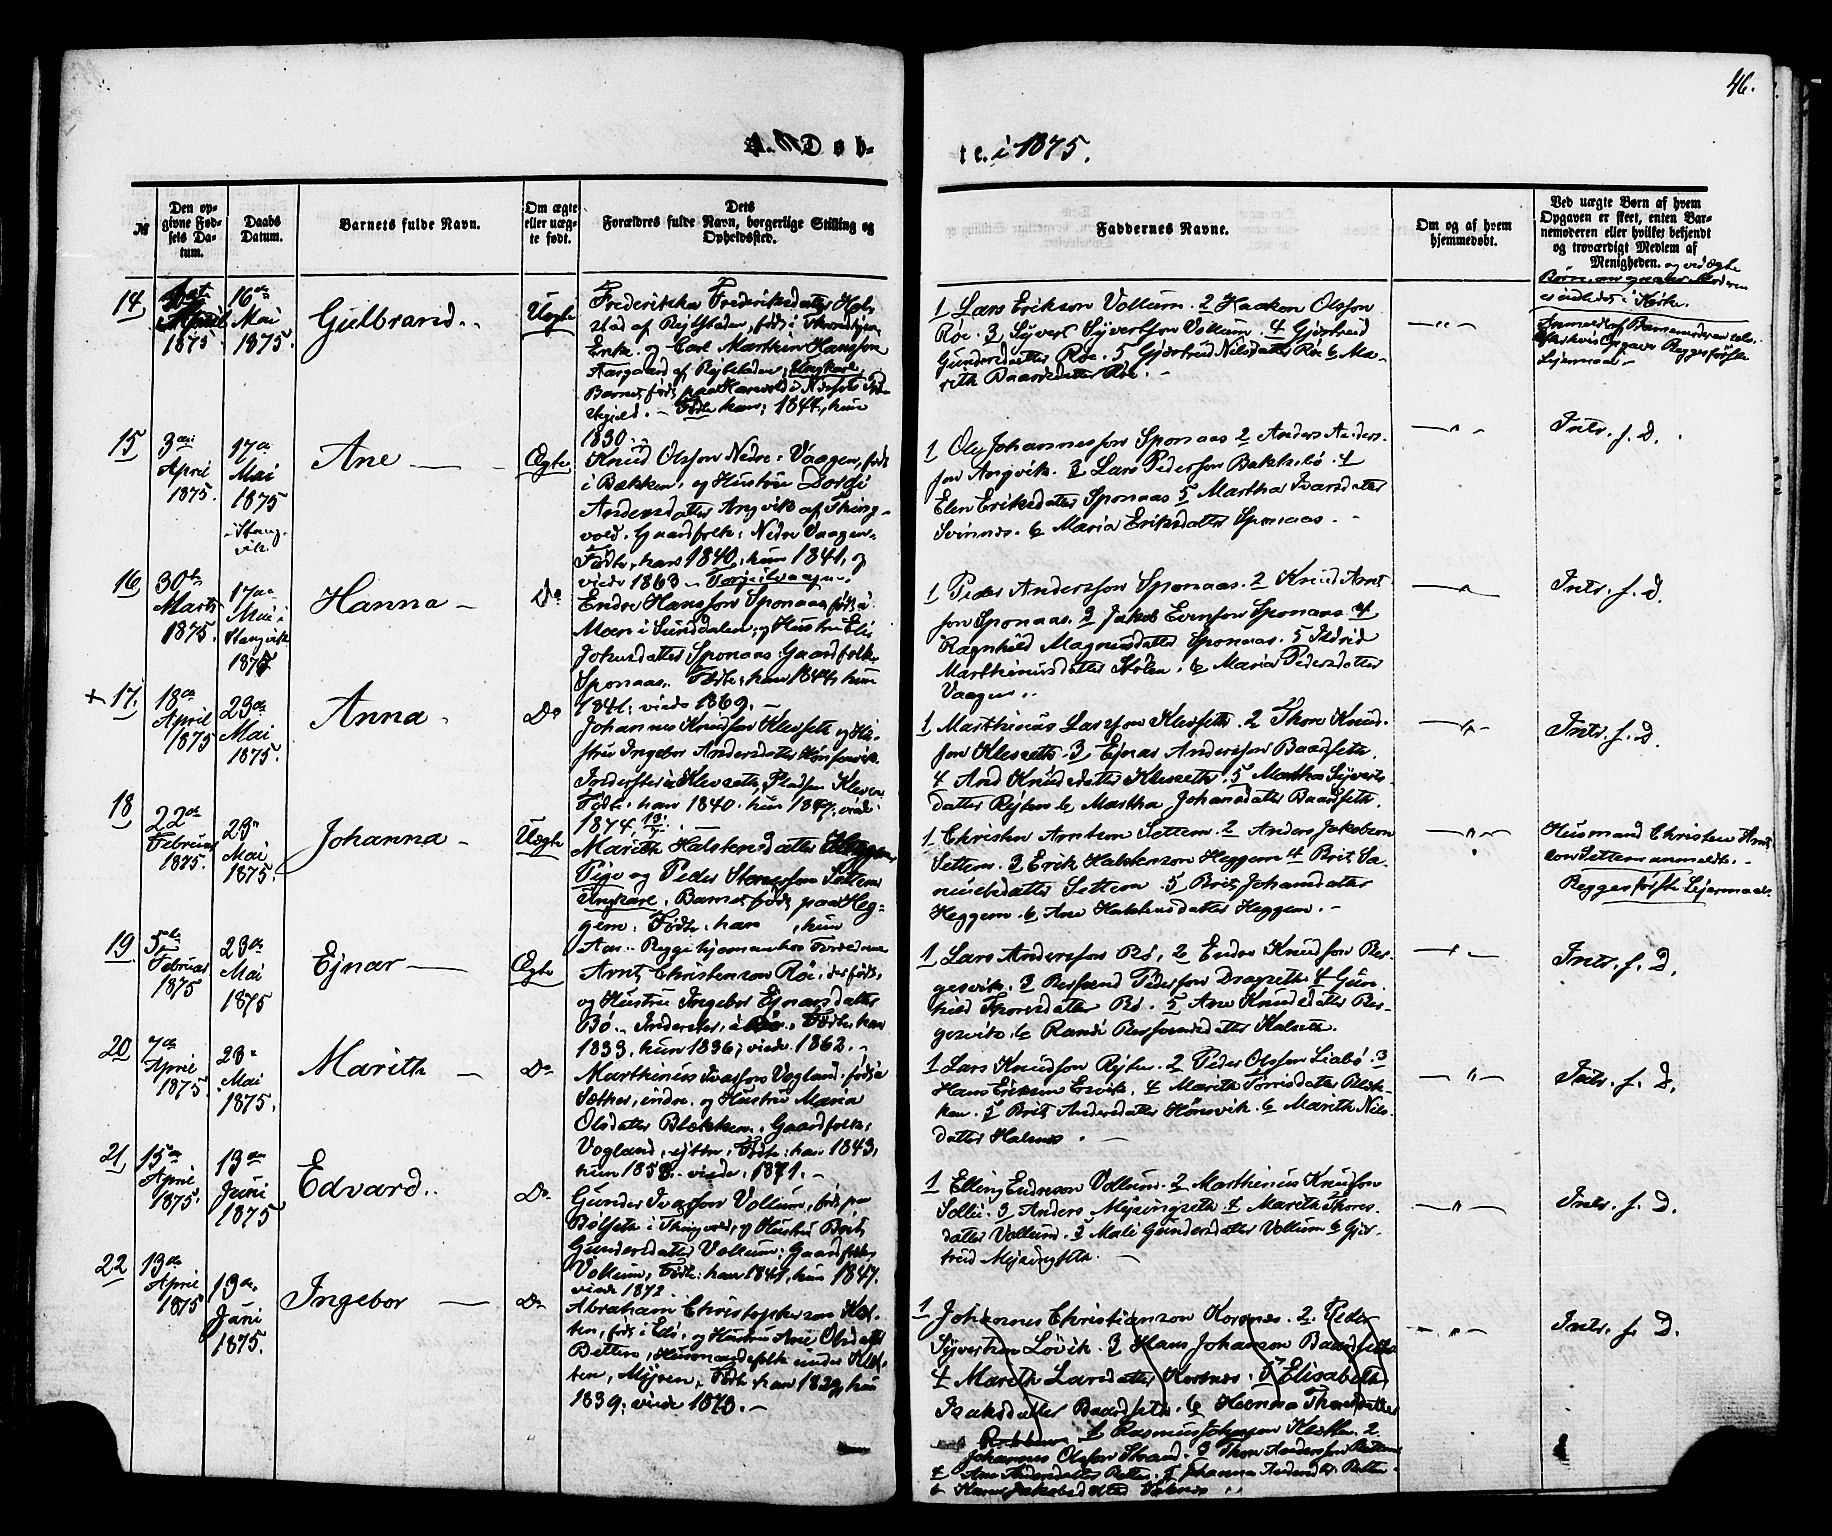 46.
A. Døb-
te. i 1875.
№
Den op-
givne Fød-
sels Da-
tum.
Daabs
Datum.
Barnets fulde Navn.
Om ægte
eller uæg-
te født.
Dets
Forældres fulde Navn, borgerlige Stilling og
Opholdssted.
Faddernes Navne.
Om og af hvem
hjemmedøbt.
Ved uægte Børn af hvem
Opgaven er skeet, enten Bar-
nemoderen eller hvilket bekjendt
og troværdigt Medlem af
Menigheden. og ved ægte
Børn, om
i Kirke.
14
April
1875
16de
Mai
1875.
Gulbrand
Uægte
Frederikka Frederiksdatter
stad af Rejtstaden, født i Throndhjem,
Enke, og Carl Marthin Hansson
Aasgaard af Rejtstaden, Ungkarl,
Barnet født paa
Født han: 1844, hun
1830.
1 Lars Erikson Vollum. 2 Haakon Olsson
Røe. 3 Syvert Syvertson Vollum. 4 Gjertrud
Gundersdatter Røe. 5 Gjertrud Nilsdatter Røe 6 Ma-
rith Baardsdatter Røe.
Begges første
Lejermaal
15
3die
April
1875.
17de
Mai
1875
i Stang-
vik.
Ane
Ægte
Knud Olsson Nedre-Vaagen, født
i Bækken, og Hustru Dordi
Andersdatter Angvik af Thing-
vold. Gaardfolk: Nedre Vaagen.
Født, han 1840, hun 1841, og
viede 1863
1 Ole Johannesson Sponaas 2 Anders Anders-
son Angvik. 3 Lars Pederson Bakksbø. 4
Elen Eriksdatter Sponaas 5 Martha Ivarsdatter
Svinnes. 6 Maria Eriksdatter Sponaas.
Intr. f. D.
16
30te
Marts
1875.
17de
Mai i
Stangvik
1875
Hanna
Do
Endre Hansson Sponaas født i
Moen i Sunddalen, og Hustru
Johnsdatter Sponaas: Gaardfolk
Sponaas. Født: han 1844, hun
1841; viede 1869.
1 Peder Andersson Sponaas. 2 Knud Arnt-
son Sponaas. 3 Jakob Evenson Sponaas 4
Ragnhild Magnusdatter Sponaas. 5 Ildrid
Marthinusdatter Stølen. 6 Maria Pedersdatter
Vaagen.
Intr. f. D.
+ 17.
18de
April
1875
23de
Mai
1875.
Anna
Do
Johannes Knudson Klevseth og Hu-
stru Ingebor Andersdatter
Inderster i Klevseth, Pladsen Kleven
Født: han 1840. hun 1847. viede
1874
1 Marthinus Larsson Klevseth. 2 Thore Knud-
son Klevseth. 3 Ejnar Andersson Baardseth.
4 Ane Knudsdatter Klevseth. 5 Martha Syverts-
datter Rejten 6 Martha Johansdatter Baardseth.
Intr. f. D.
18
22de
Februar
1875.
23de
Mai
1875.
Johanna
Uægte
Marith Halstensdatter Heggem
Pige og Peder Størerson Settem
Ungkarl. Barnet født paa Heg-
gem. Født: han , hun
Aar. Begge hjemme hos Forældrene
1 Christen Arntson Settem. 2 Anders Jakobson
Settem. 3 Erik Halstenson Heggem 4 Brit Sa-
muelsdatter Settem. 5 Brit Johansdatter
Heggem. 6 Ane Halstensdatter Heggem.
Husmand Christen Arnt-
son Settem anmeldte.
Begges første Lejermaal
19
5te
Februar
1875
23de
Mai
1875
Ejnar
Ægte
Arnt Christenson Røe, der født,
og Hustru Ingebor Ejnarsdatter
Bø. Inderster i Røe. Født, han
1833, hun 1836; viede 1862.
1 Lars Andersson Bø. 2 Endre Knudson Ber-
gesvik. 3 Bersvend Pederson Dragseth. 4 Gun-
hild Thoresdatter Bø. 5 Ane Knudsdatter Ber-
gesvik. 6 Randi Bersvendsdatter Halseth.
Intr. f. D.
20
7de
April
1875
23de
Mai
1875.
Marith
Do
Marthinus Ivarson Vogland. født i
Sæther, indre. og Hustru Maria
Olsdatter Blekken. Gaardfolk,
Vogland, ytre. Født: han 1843,
hun 1858. viede: 1871.
1 Lars Knudson Rejten. 2 Peder Olsson Liabø. 3
Hans Erikson Ersvik. 4 Marith Torrisdatter Blek-
ken. 5 Brit Andersdatter Hønsvik. 6 Marith Nils-
datter Halsnes.
Intr. f. D.
21
15de
April
1875.
13de
Juni
1875
Edvard
Do
Gunder Ivarson Vollum, født paa
Bølseth i Thingvold, og Hustru Brit
Gundersdatter Vollum: Gaardfolk,
Vollum. Født: han 1841, hun 1847.
viede 1872.
1 Elling Endreson Vollum. 2 Marthinus Knudson
Sollie. 3 Anders Mejsingseth 4 Marith Thores-
datter Vollum. 5 Mali Gundersdatter Vollum 6 Gjer-
trud Mejsingseth.
Intr. f. D.
22
13de
April
1875
13de
Juni
1875.
Ingebor
Do
Abraham Christopherson Klet-
ten, født i Edø, og Hustru Ane Olsdatter
Betten, Husmandsfolk under Klet-
ten, Myren. Født han 1829, hun
1839; viede 1873.
1 Johannes Christianson Korsnes. 2. Peder
Syvertsen Løvik. 3 Hans Johanson Baardseth
4 Marith Larsdatter Korsnes. 5 Elisabeth
Isaksdatter Baardseth. 6 Hanna Thoresdatter
1 Rasmus Johnson Kletten. 2
Johannes Olsson Strand. 3 Thore Andersson Betten
4 Ane Andersdatter Betten. 5 Johanna Andersdtr. Betten
6 Karen Jakobsdatter
Intr. f. D.